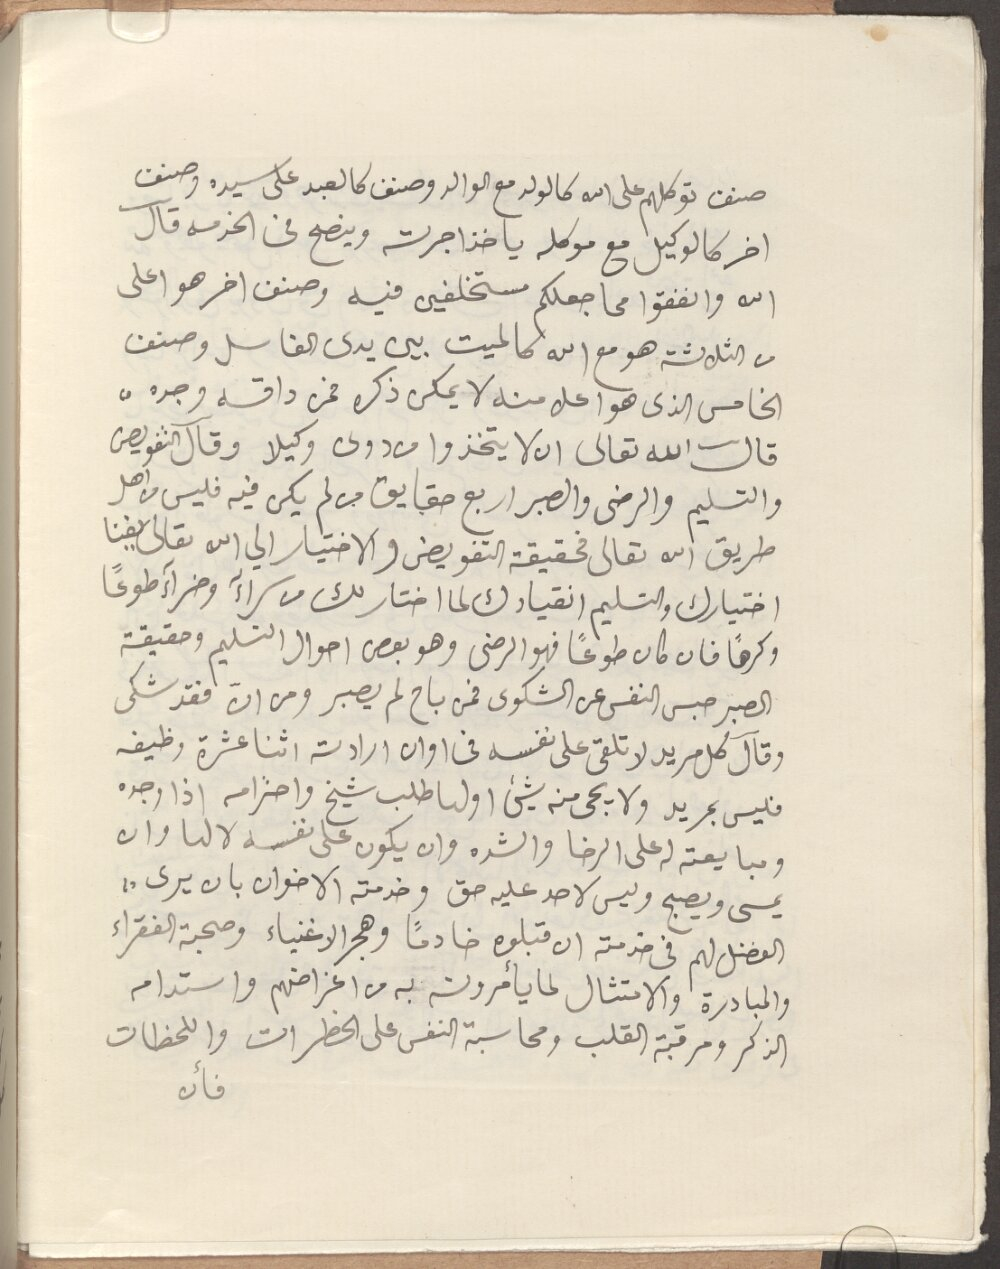 صنف توكلهم على الله كالولد مع الوالد وصنف كالعبد على سيده وصنف
اخر كالوكيل مع موكله ياخذ اجرته وينصح فى الخدمه قال
الله وانفقوا مما جعلكم مستخلفين فيه وصنف اخر هو اعلى
من الثلاثة هو مع الله كالميت بين يدى الغاسل وصنف
الخامس الذى هو اعلا منه لا يمكن ذكره فمن داقه وجده
قال الله تعالى ان لا يتخذوا من دونى وكيلا وقال التفويض
والتسليم والرضى والصبر اربع حقايق من لم يكن فيه فليس من اهل
طريق الله تعالى فحقيقة التفويض والاختيار الي الله تعالى
اختيارك والتسليم انقيادك لما اختار لك من سراء وضراء طوعًا
وكرهًا فان كان طوعًا فهو الرضى وهو بعض احوال التسليم وحقيقة
الصبر حبس النفس عن الشكوى فمن باح لم يصبر ومن انّ فقد شكى
وقال كل مريد لا تلقى على نفسه فى اوان ارادته اثنا عشرة وظيفه
فليس بمريد ولا يجى منه شئ اولها طلب شيخ واحترامه اذا وجده
ومبايعته له على الرخا والشده وان يكون على نفسه لا لها وان
يمسى ويصبح وليس لاحد عليه حق وخدمته الاخوان بان يرى
الفضل لهم فى خدمته ان قبلوه خادمًا وهجر الاغنياء وصحبة الفقراء
والمبادرة والامتثال لما يأمرونه به من اغراضهم واستدامه
الذكر ومرقبة القلب ومحاسبة النفس على الخطرات واللحظات
فأن